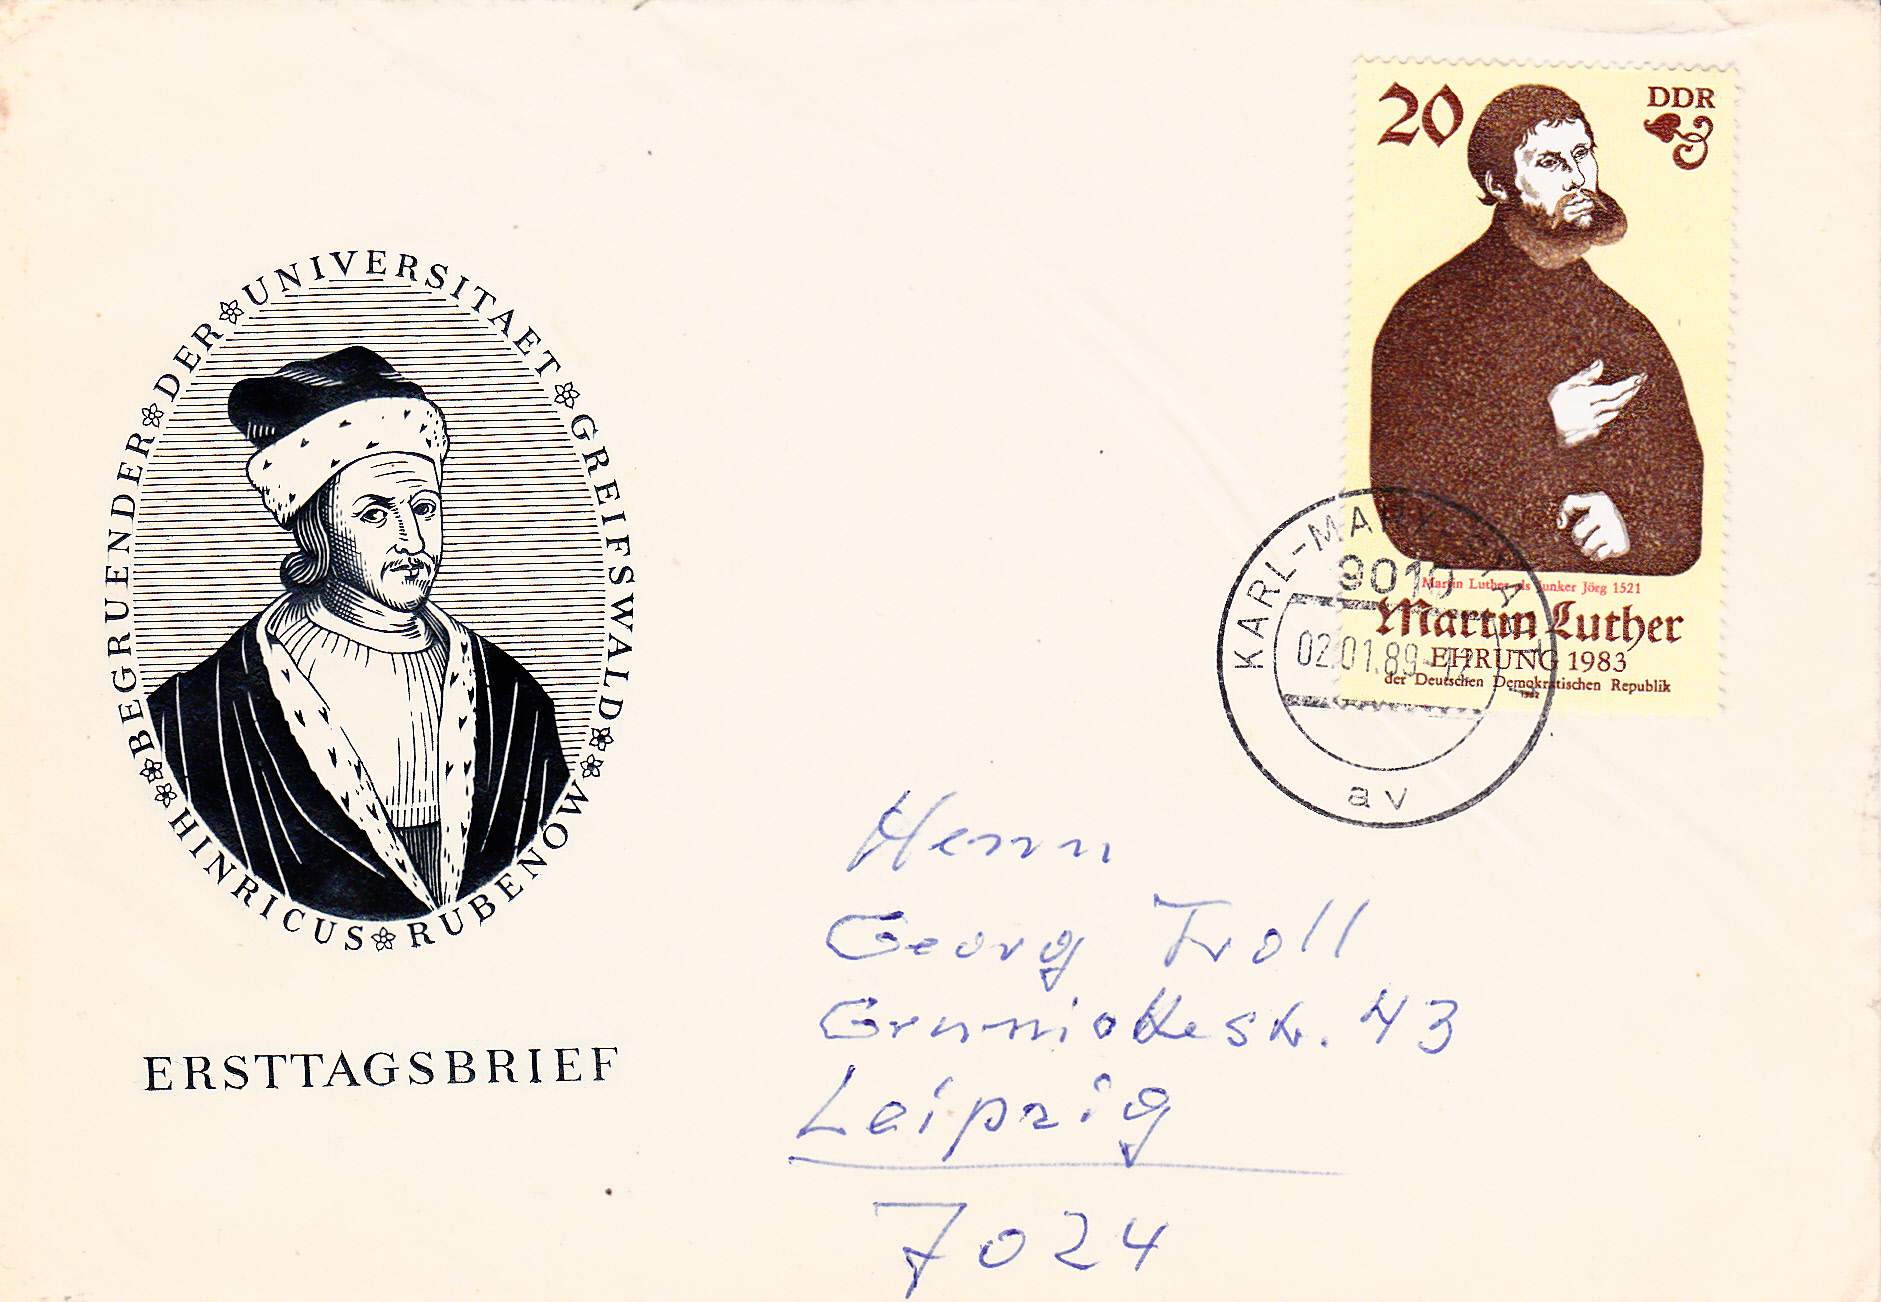 BEGRUENDER DER UNIVERSITAET GREIFSWALD
HINRICUS RUBENOW
ERSTTAGSBRIEF
20
DDR
Martin Luther als Junker Jörg 1521
Martin Luther
EHRUNG 1983
der Deutschen Demokratischen Republik
1982
KARL-MARX-STADT
9010
02.01.89-12
av
Herrn
Georg Troll
43
Leipzig
7024